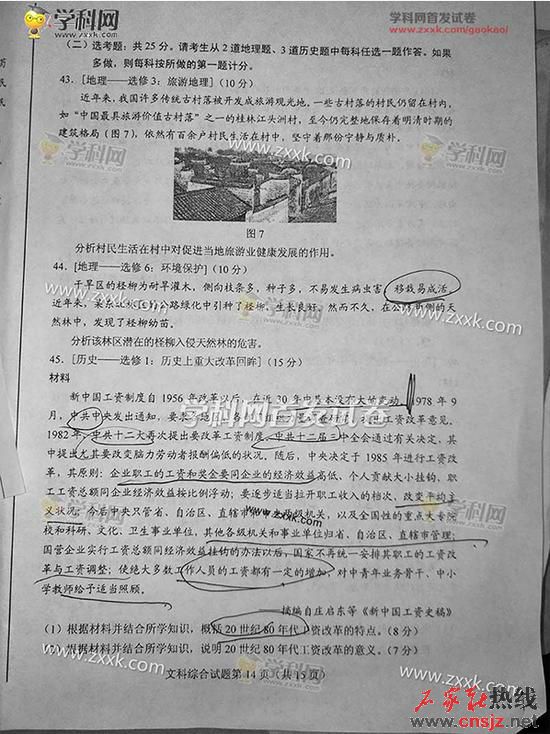 学科网
学科网首发试卷
www.zxxk.com/gaokao/
(二) 选考题：共 25 分。请考生从 2 道地理题、3 道历史题中每科任选一题作答。如果
多做，则每科按所做的第一题计分。
43. [地理——选修 3：旅游地理] (10 分)
近年来，我国许多传统古村落被开发成旅游观光地，一些古村落的村民仍留在村内，
如“中国最具旅游价值古村落”之一的桂林江头洲村，至今仍完整地保存着明清时期的
建筑格局 (图 7)，依然有百余户村民生活在村中，坚守着那份宁静与质朴。
图 7
分析村民生活在村中对促进当地旅游业健康发展的作用。
44. [地理——选修 6：环境保护] (10 分)
干旱区的柽柳为耐旱灌木，侧向枝条多，种子多，不易发生病虫害，移栽易成活。
近年来，某林区在公路绿化中引种了柽柳，生长良好。然而不久，在公路两侧的天
然林中，发现了柽柳幼苗。
分析该林区潜在的柽柳入侵天然林的危害。
45. [历史——选修 1：历史上重大改革回眸] (15 分)
材料
新中国工资制度自 1956 年改革以后，在近 30 年中基本没有大的变动。1978 年 9
月，中共中央发出通知，要求
改革意见。
1982 年，中共十二大再次提出要改革工资制度，中共十二届三中全会通过有关决定，其
中提出尤其要改变脑力劳动者报酬偏低的状况。随后，中央决定于 1985 年进行工资改
革，其原则：企业职工的工资和奖金要同企业的经济效益高低、个人贡献大小挂钩，职
工工资总额同企业经济效益按比例浮动；要逐步适当拉开职工收入的档次，改变平均主
义状况；今后中央只管省、自治区、直辖市 级机关，以及全国性的重点大专院
校和科研、文化、卫生事业单位，其他各级机关和事业单位归省、自治区、直辖市管理；
国营企业实行工资总额同经济效益挂钩的办法以后，国家不再统一安排其职工的工资改
革与工资调整；使绝大多数工作人员的工资都有一定的增加，对中青年业务骨干、中小
学教师给予适当照顾。
——摘编自庄启东等《新中国工资史稿》
(1) 根据材料并结合所学知识，概括 20 世纪 80 年代工资改革的特点。(8 分)
(2) 根据材料并结合所学知识，说明 20 世纪 80 年代工资改革的意义。(7 分)
文科综合试题第 14 页 (共 15 页)
学科网
www.zxxk.com
石家庄热线
www.cnsjz.net